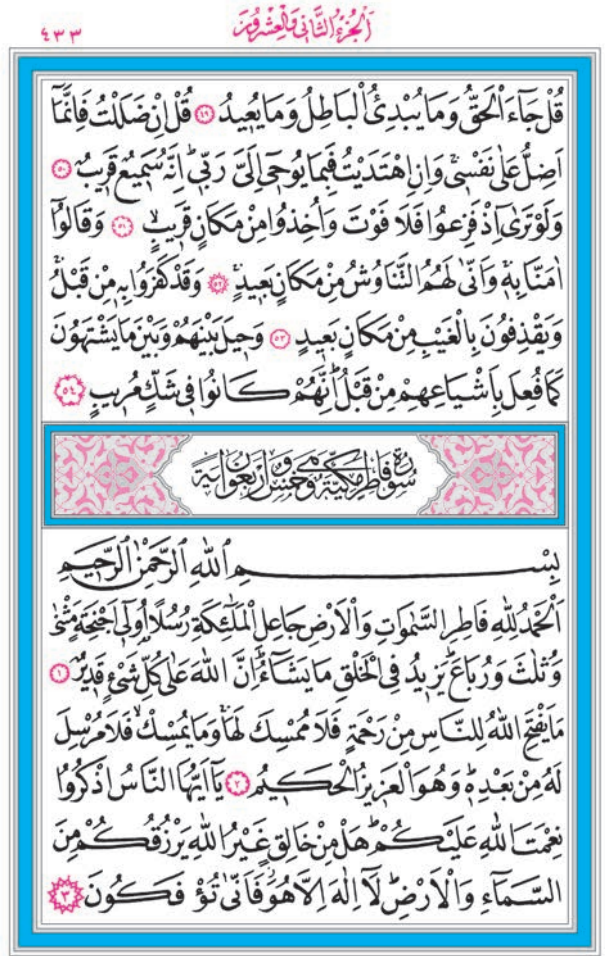 اَلْجُزْءُ الثَّانِي وَالْعِشْرُونَ
٤٣٣
قُلْ جَٓاءَ الْحَقُّ وَمَا يُبْدِئُ الْبَاطِلُ وَمَا يُعِيدُ ٤٩ قُلْ اِنْ ضَلَلْتُ فَاِنَّمَٓا
اَضِلُّ عَلٰى نَفْسٖيۚ وَاِنِ اهْتَدَيْتُ فَبِمَا يُوحٖٓي اِلَيَّ رَبّٖيۜ اِنَّهُ سَمٖيعٌ قَرٖيبٌ ٥٠
وَلَوْ تَرٰٓى اِذْ فَزِعُوا فَلَا فَوْتَ وَاُخِذُوا مِنْ مَكَانٍ قَرٖيبٍۙ ٥١ وَقَالُٓوا
اٰمَنَّا بِهٖۚ وَاَنّٰى لَهُمُ التَّنَاوُشُ مِنْ مَكَانٍ بَعٖيدٍۚ ٥٢ وَقَدْ كَفَرُوا بِهٖ مِنْ قَبْلُۚ
وَيَقْذِفُونَ بِالْغَيْبِ مِنْ مَكَانٍ بَعٖيدٍ ٥٣ وَحٖيلَ بَيْنَهُمْ وَبَيْنَ مَا يَشْتَهُونَ
كَمَا فُعِلَ بِاَشْيَاعِهِمْ مِنْ قَبْلُۜ اِنَّهُمْ كَانُوا فٖي شَكٍّ مُرٖيبٍ ٥٤
سُورَةُ فَاطِرٍ مَكِّيَّةٌ وَهِيَ خَمْسٌ وَاَرْبَعُونَ اٰيَةً
بِسْمِ اللّٰهِ الرَّحْمٰنِ الرَّحٖيمِ
اَلْحَمْدُ لِلّٰهِ فَاطِرِ السَّمٰوَاتِ وَالْاَرْضِ جَاعِلِ الْمَلٰٓئِكَةِ رُسُلًا اُو۬لٖٓي اَجْنِحَةٍ مَثْنٰى
وَثُلٰثَ وَرُبَاعَۜ يَزٖيدُ فِي الْخَلْقِ مَا يَشَٓاءُۜ اِنَّ اللّٰهَ عَلٰى كُلِّ شَيْءٍ قَدٖيرٌ ١
مَا يَفْتَحِ اللّٰهُ لِلنَّاسِ مِنْ رَحْمَةٍ فَلَا مُمْسِكَ لَهَاۚ وَمَا يُمْسِكْۙ فَلَا مُرْسِلَ
لَهُ مِنْ بَعْدِهٖۜ وَهُوَ الْعَزٖيزُ الْحَكٖيمُ ٢ يَٓا اَيُّهَا النَّاسُ اذْكُرُوا
نِعْمَتَ اللّٰهِ عَلَيْكُمْۜ هَلْ مِنْ خَالِقٍ غَيْرُ اللّٰهِ يَرْزُقُكُمْ مِنَ
السَّمَٓاءِ وَالْاَرْضِۜ لَٓا اِلٰهَ اِلَّا هُوَۘ فَاَنّٰى تُؤْفَكُونَ ٣